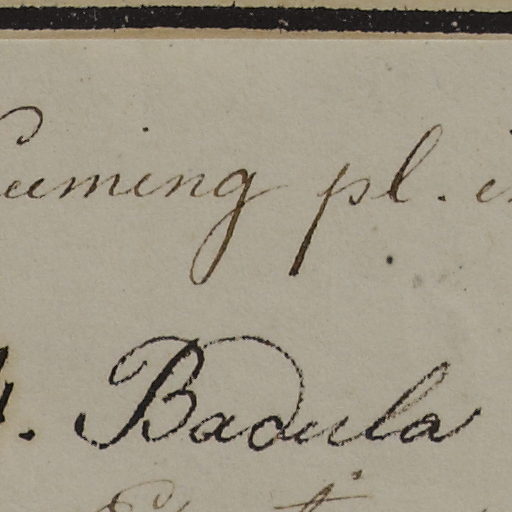 Cuming pl. i
. Badula